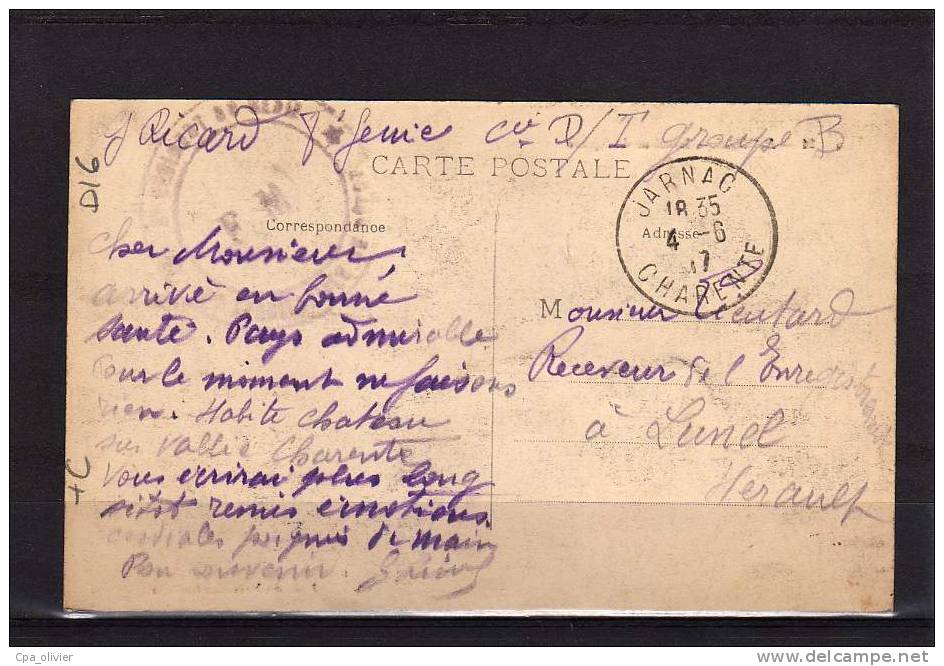 J Ricard 7e Genie Cie D/I groupe B
CARTE POSTALE
Correspondance
Adresse
JARNAC
18 35
4 -6
17
CHARENTE
D16
+C
cher Monsieur
arrivé en bonne
santé. Pays admirable
Pour le moment ne faisons
rien. Habite chateau
sur vallée Charente
Vous écrirai plus long
sitôt remis émotions.
cordiales poignées de main
Bon souvenir.
Monsieur
Receveur de l'Enregistrement
à Lunel
Herault
Cpa_olivier
www.delcampe.net